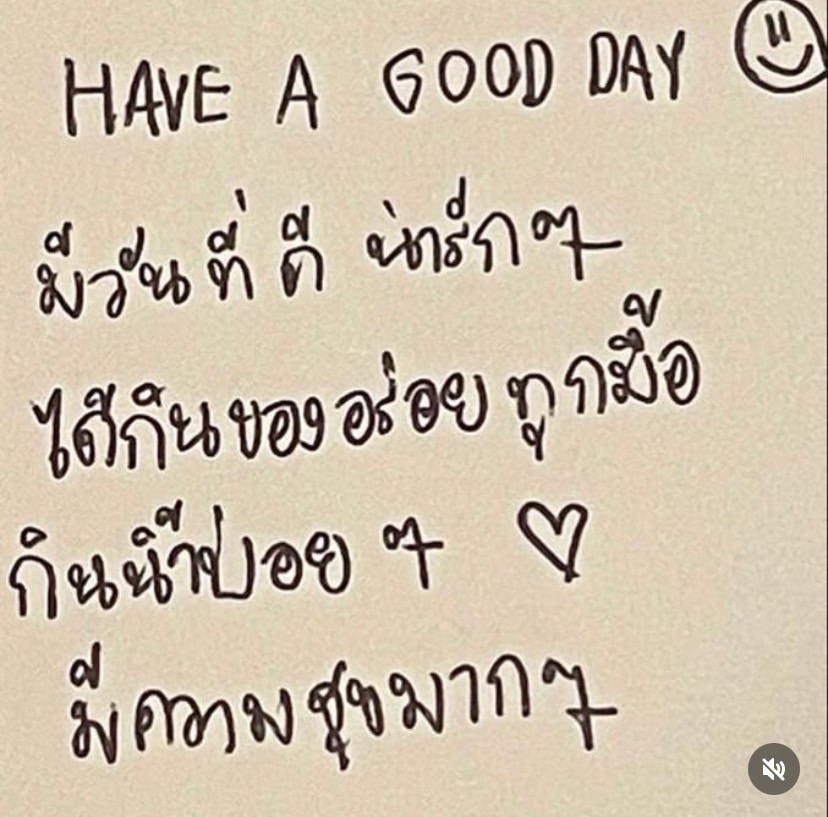 HAVE A GOOD DAY
มีวันที่ดี น่ารักๆ
ได้กินของอร่อยทุกมื้อ
กินน้ำบ่อย ๆ ♡
มีความสุขมากๆ